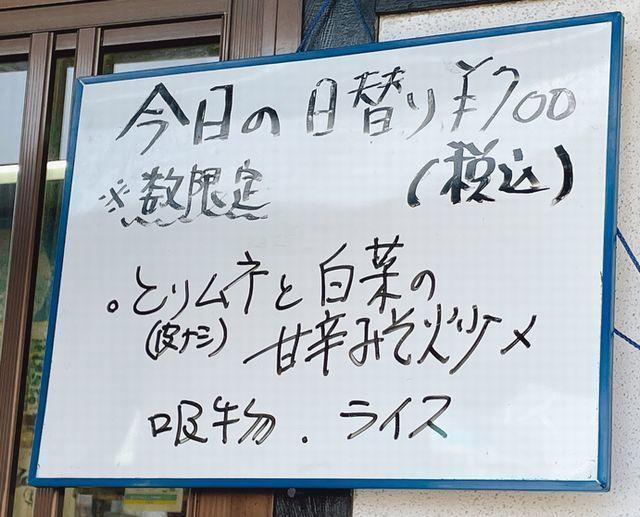 今日の日替り¥700
※数限定 (税込)
。とりムネと白菜の
(皮ナシ) 甘辛みそ炒メ
吸物.ライス